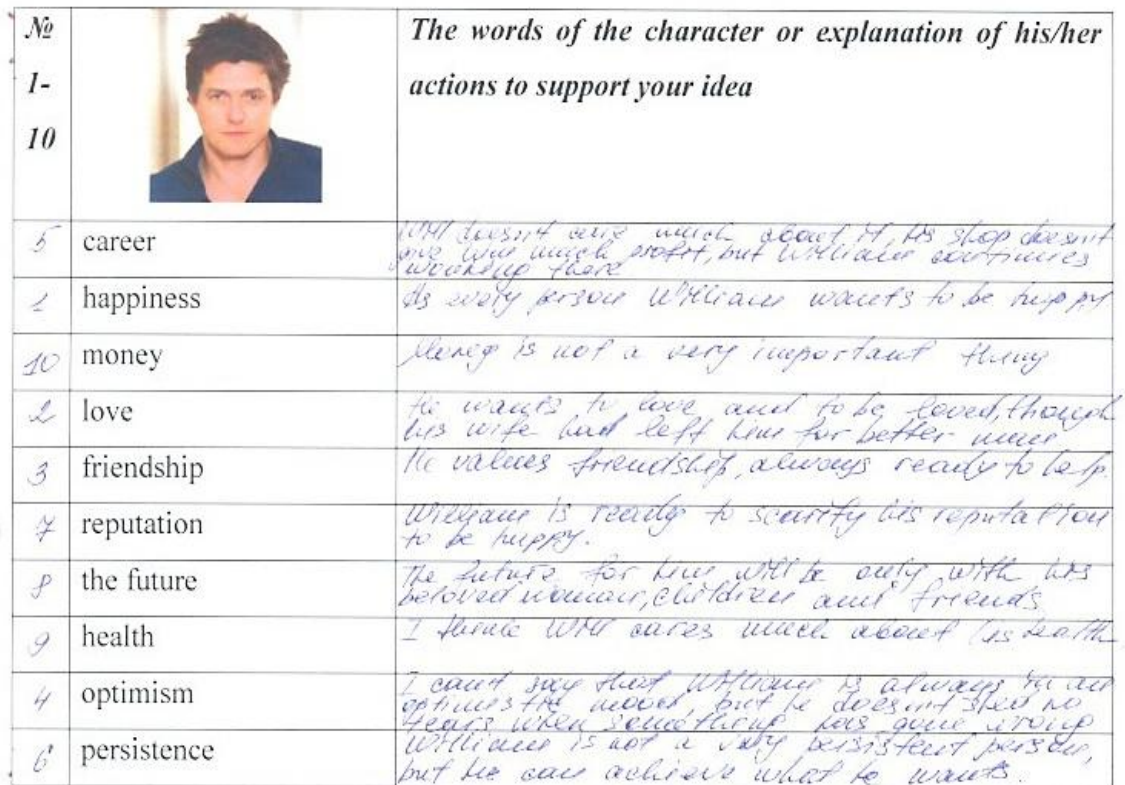 №
1-
10
The words of the character or explanation of his/her
actions to support your idea
5 career
Will doesn't care much about it, his shop doesn't
give him much profit, but William continues
working there
1 happiness
As every person William wants to be happy
10 money
Money is not a very important thing
2 love
He wants to love and to be loved, though
his wife had left him for better man
3 friendship
He values friendship, always ready to help.
7 reputation
William is ready to scarify his reputation
to be happy.
8 the future
The future for him will be only with his
beloved woman, children and friends
9 health
I think Will cares much about his health
4 optimism
I can't say that William is always in an
optimistic mood, but he doesn't shed no
tears when something has gone wrong
6 persistence
William is not a very persistent person,
but he can achieve what he wants.